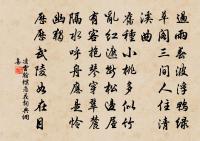 過雨春波浮鴨綠
草閣三間人住清
溪曲
舊種小桃多似竹
亂紅遮斷松邊屋
有客抱琴穿翠麓
隔水呼舟應是憐
幽獨
歷歷武陵如在目